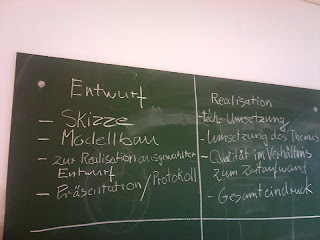 Entwurf
- Skizze
- Modellbau
- zur Realisation ausgewählter
Entwurf
- Präsentation/Protokoll
Realisation
- tech. Umsetzung
- Umsetzung des Themas
- Qualität im Verhältnis
zum Zeitaufwand
- Gesamteindruck